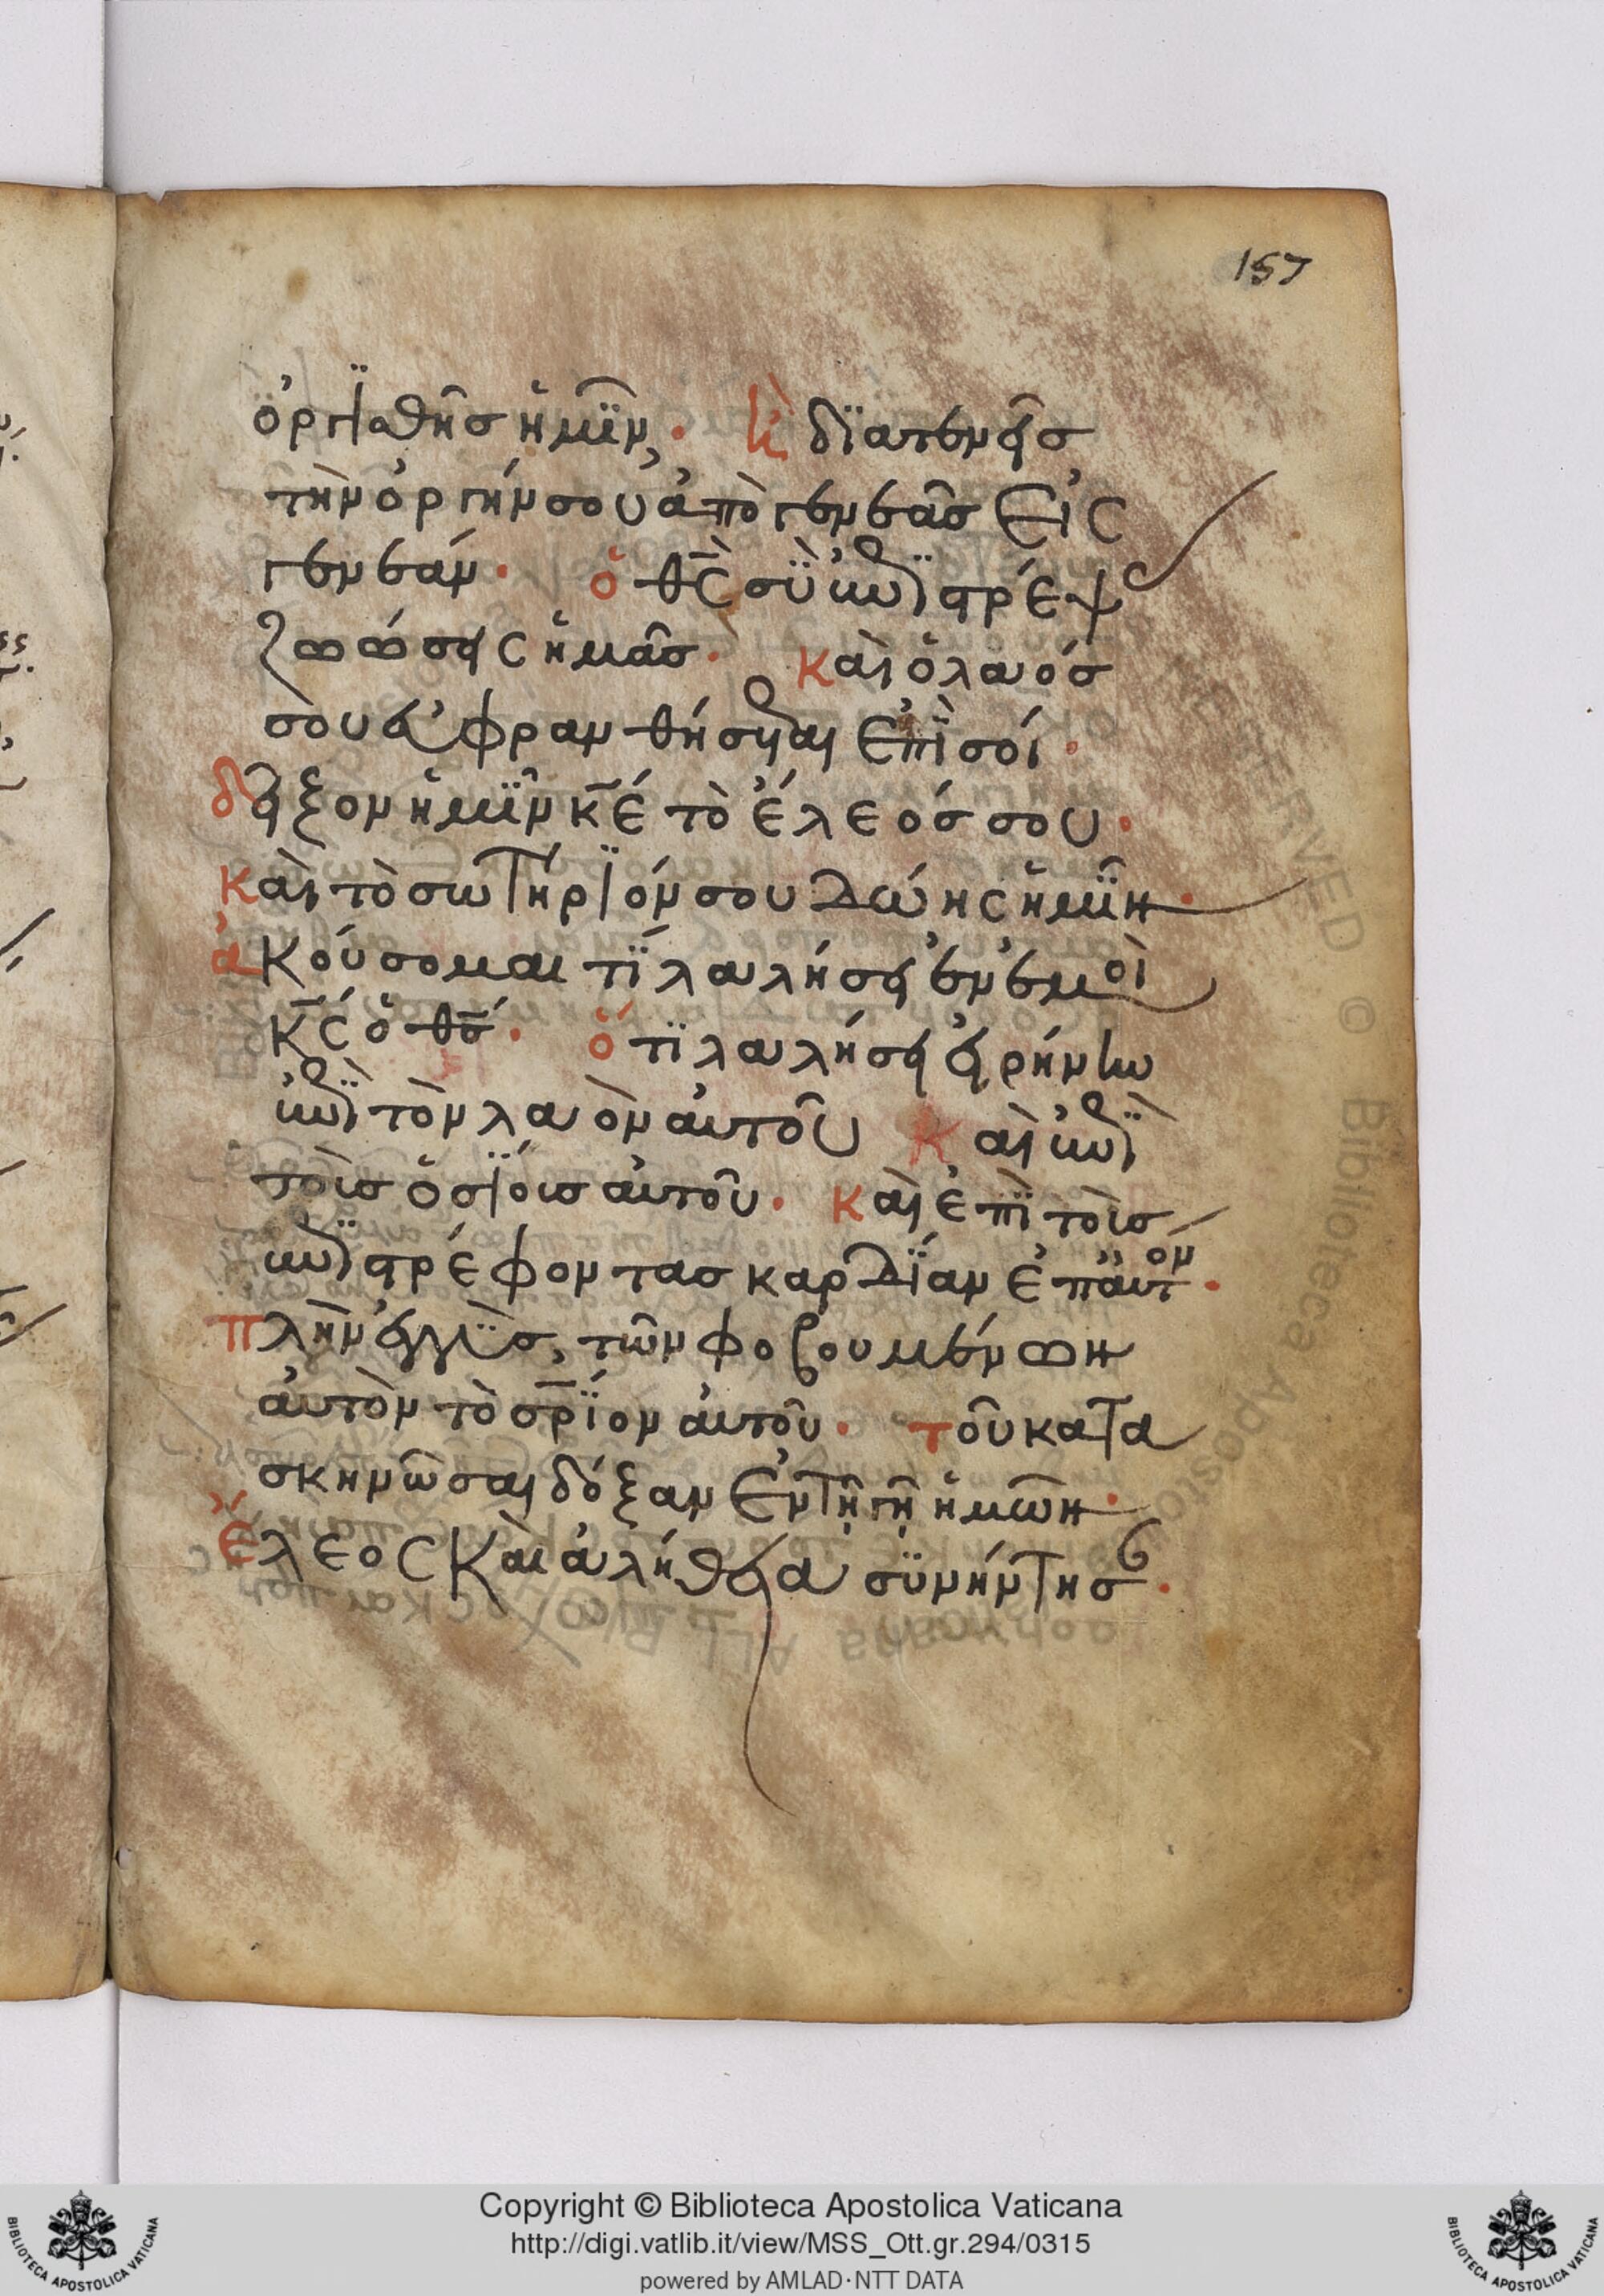 157
ὀργϊσθῆσ ἡμῖν· κὶ δϊατενεῖσ
τὴν ὀργήν σου ἀπὸ γενεᾶσ εἰς
γενεάν· ὁ θς σὺ ἐπϊστρέψ
ζωώσεις ἡμᾶσ· καὶ ὁ λαόσ
σου εὐφρανθήσεται ἐπὶ σοί·
δεῖξον ἡμῖν κε τὸ ἔλεόσ σου·
καὶ τὸ σωτηρϊόν σου δώης ἡμῖν·
ἀκούσομαι τί λαλήσει ἐν ἐμοὶ
κς ὁ θσ· ὅτϊ λαλήσει εἰρήνην
ἐπϊ τὸν λαὸν αὐτοῦ καὶ ἐπϊ
τοὺσ ὁσϊουσ αὐτοῦ· καὶ ἐπὶ τοὺσ
ἐπϊστρέφοντασ καρδίαν ἐπ αὐτόν·
πλὴν ἐγγὺσ τῶν φοβουμένων
αὐτὸν τὸ σρϊον αὐτοῦ· τοῦ κατα
σκηνῶσαι δόξαν ἐν τῇ γῇ ἡμῶν·
ἔλεος καὶ ἀλήθεια συνήντησε·
Copyright © Biblioteca Apostolica Vaticana
http://digi.vatlib.it/view/MSS_Ott.gr.294/0315
powered by AMLAD·NTT DATA
BIBLIOTECA APOSTOLICA VATICANA
BIBLIOTECA APOSTOLICA VATICANA